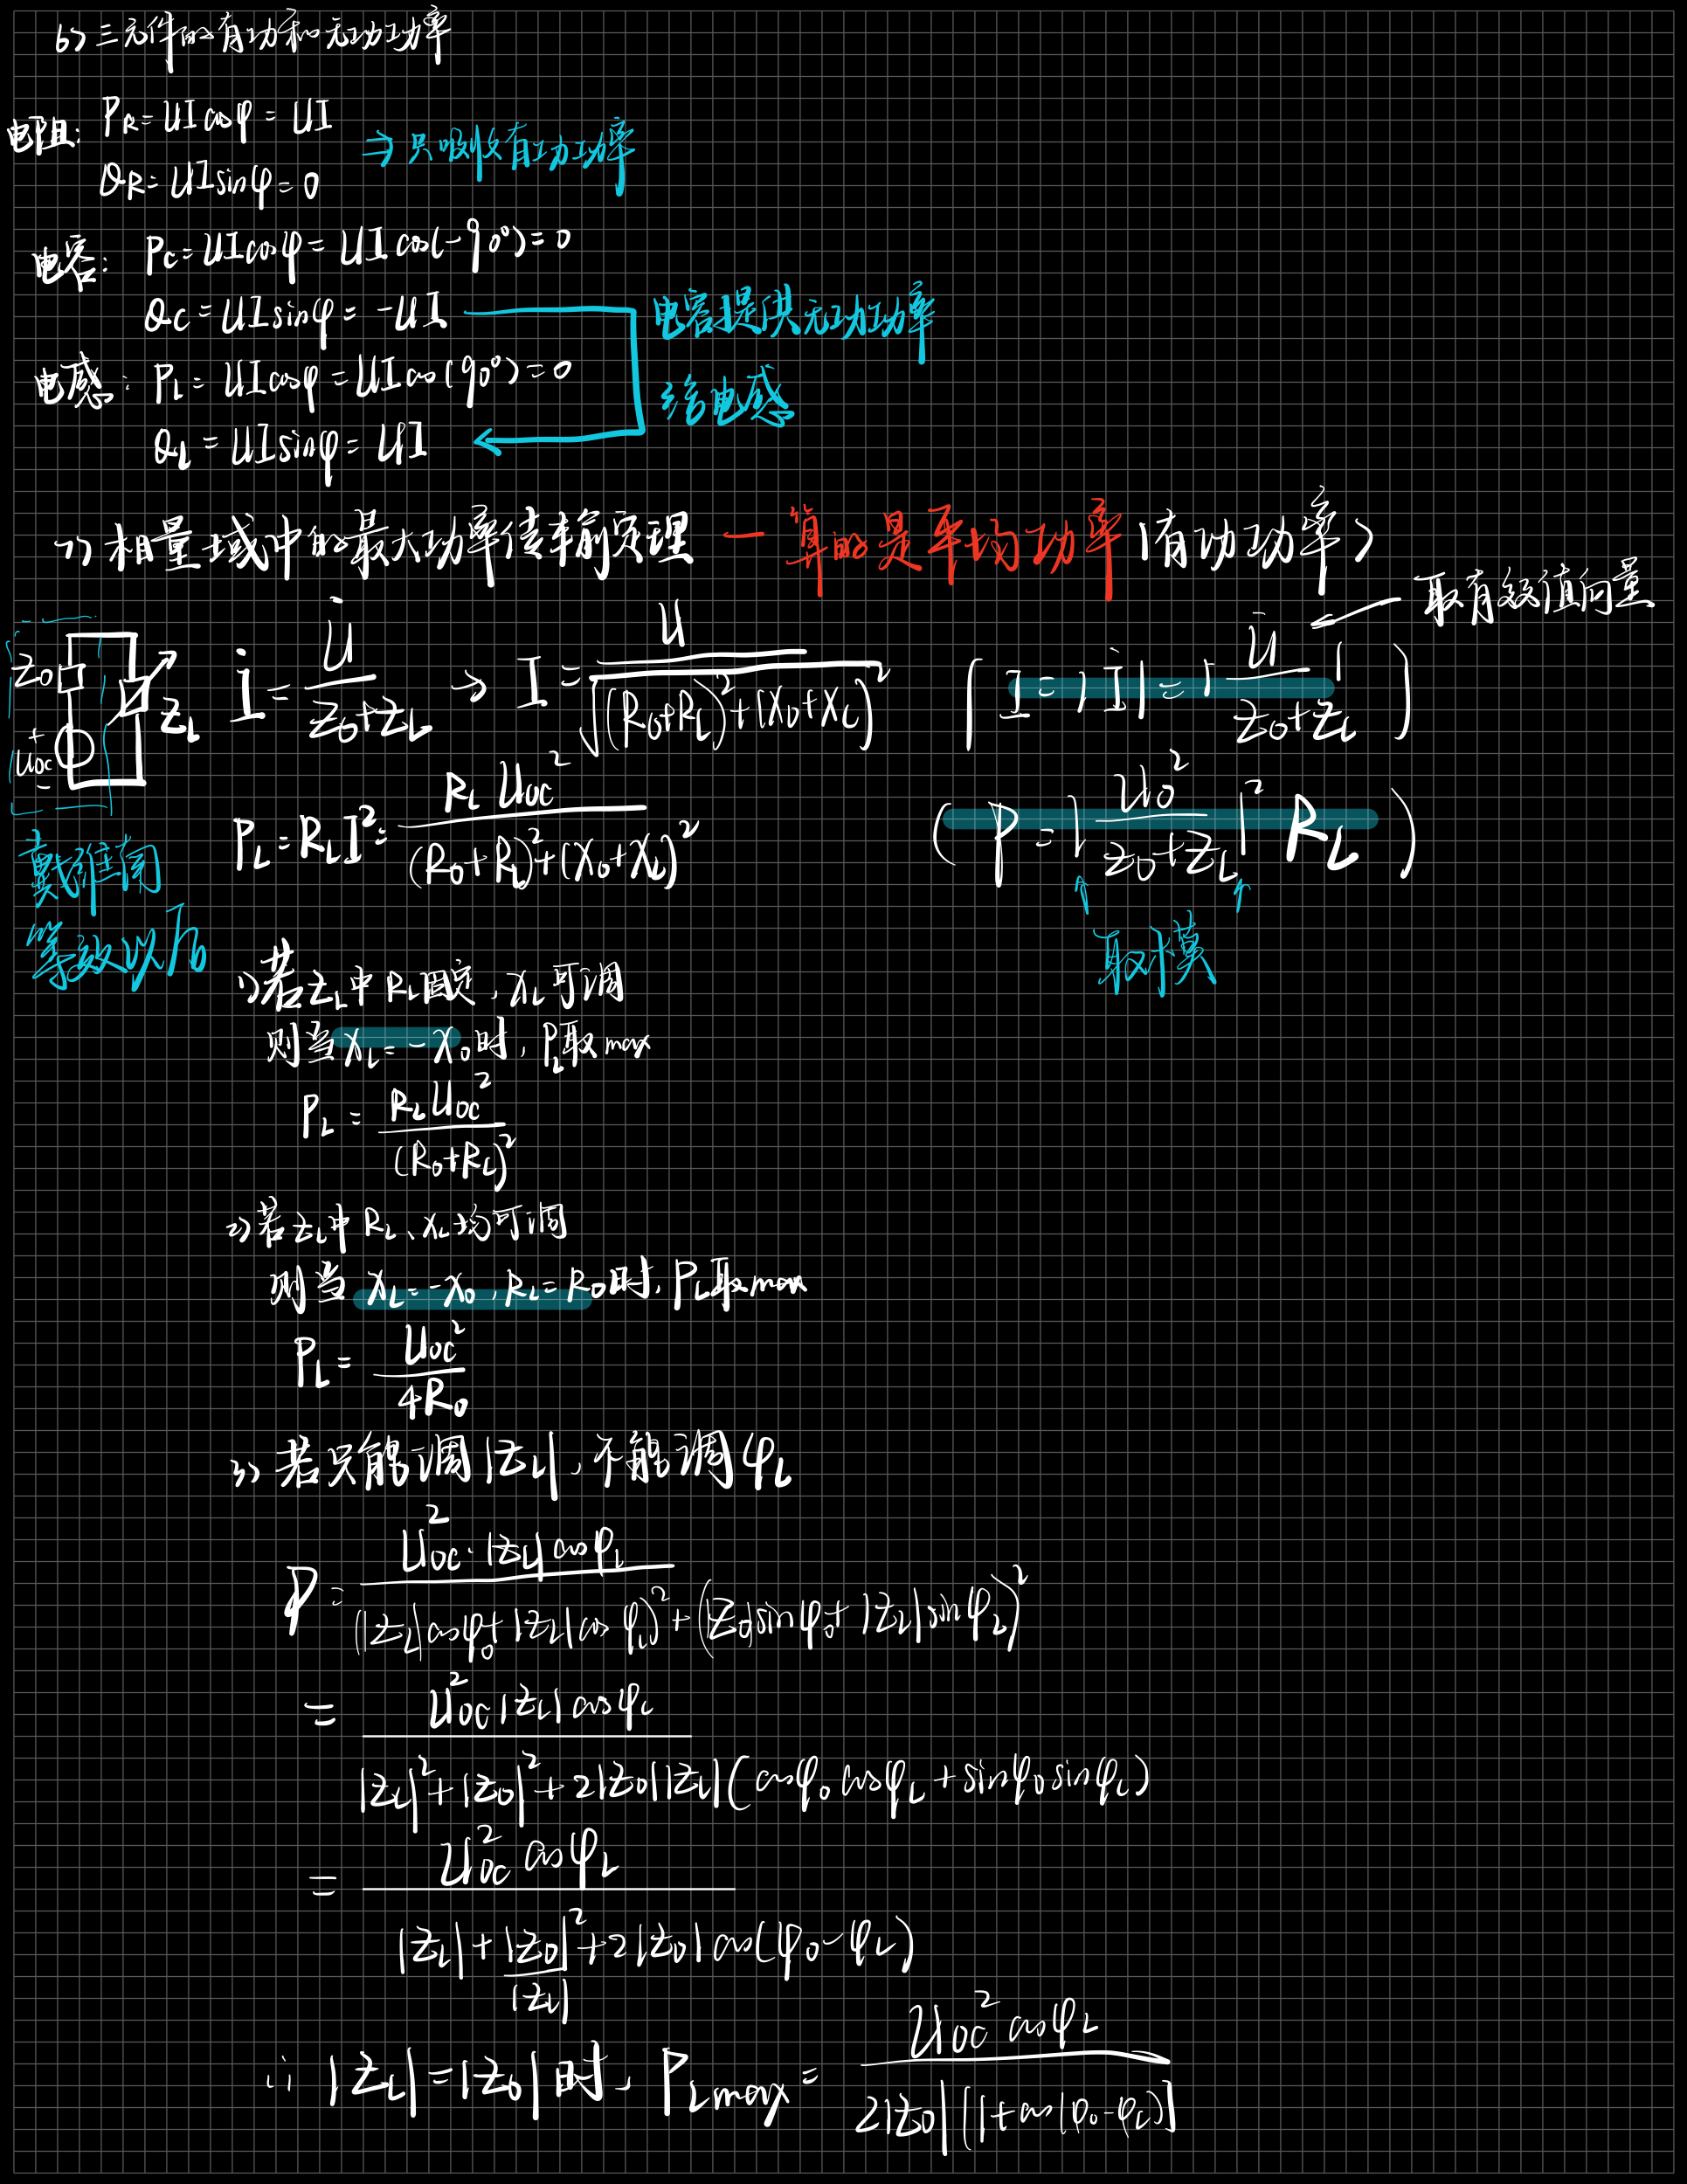 6) 三元件的有功和无功功率
电阻: P_R = UIcosφ = UI
Q_R = UIsinφ = 0
⇒ 只吸收有功功率
电容: P_C = UIcosφ = UIcos(-90°) = 0
Q_C = UIsinφ = -UI
电感: P_L = UIcosφ = UIcos(90°) = 0
Q_L = UIsinφ = UI
电容提供无功功率
给电感
7) 相量域中的最大功率传输定理 — 算的是平均功率(有功功率)
取有效值向量
Z_0
Z_L
+
U_OC
-
İ = U̇/(Z_0+Z_L) → I = U/√((R_0+R_L)²+(X_0+X_L)²) ( I = |İ| = |U̇/(Z_0+Z_L)| )
P_L = R_L I² = R_L U_OC²/((R_0+R_L)²+(X_0+X_L)²) ( P = |U_0²/(Z_0+Z_L)|² R_L )
取模
戴维南
等效以后
1) 若Z_L中R_L固定, X_L可调
则当X_L = -X_0时, P_L取max
P_L = R_L U_OC²/(R_0+R_L)²
2) 若Z_L中R_L、X_L均可调
则当X_L = -X_0, R_L = R_0时, P_L取max
P_L = U_OC²/4R_0
3) 若只能调|Z_L|, 不能调φ_L
P = U_OC²·|Z_L|cosφ_L/((|Z_L|cosφ_0+|Z_L|cosφ_L)²+(|Z_0|sinφ_0+|Z_L|sinφ_L)²)
= U_OC²|Z_L|cosφ_L/(|Z_L|²+|Z_0|²+2|Z_0||Z_L|(cosφ_0cosφ_L+sinφ_0sinφ_L))
= U_OC²cosφ_L/(|Z_L|+|Z_0|²/|Z_L|+2|Z_0|cos(φ_0-φ_L))
∴ |Z_L|=|Z_0|时, P_Lmax = U_OC²cosφ_L/(2|Z_0|[1+cos(φ_0-φ_L)])